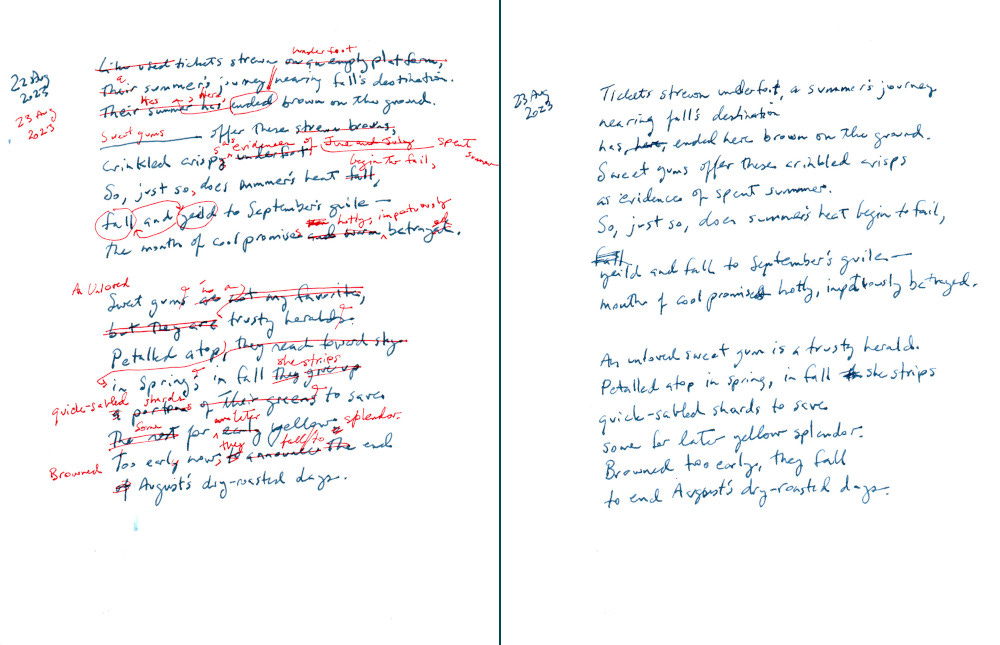 22 Aug
2023
23 Aug
2023
underfoot
Like used tickets strewn on an empty platform,
a
Their summer's journey nearing fall's destination.
Has here,
Their summer has ended brown on the ground.
Sweet gums
offer these strewn browns,
s as evidence of June and July spent summer
Crinkled crispy underfoot
begin to fail,
So, just so, does summer's heat fall,
fall and yeild to September's guile —
hotly, impetuously
the month of cool promises and warm betrayal.
ed
An Unloved
is a
Sweet gums are not my favorite,
but they are trusty heralds.
Petalled atop, they reach toward sky
she strips
in Spring, in fall they give up
quick-sabled shards
a portion of their greens to save
Some later
The rest for early yellow splendor.
they fall to
Too early now, to announce the end
Browned
of August's dry-roasted days.
23 Aug
2023
Tickets strewn underfoot, a summer's journey
nearing fall's destination
has, here, ended here brown on the ground.
Sweet gums offer these crinkled crisps
as evidence of spent summer.
So, just so, does summer's heat begin to fail,
fall
yeild and fall to September's guile —
month of cool promises hotly, impetuously betrayed.
An unloved sweet gum is a trusty herald.
Petalled atop in spring, in fall she strips
quick-sabled shards to save
some for later yellow splendor.
Browned too early, they fall
to end August's dry-roasted days.